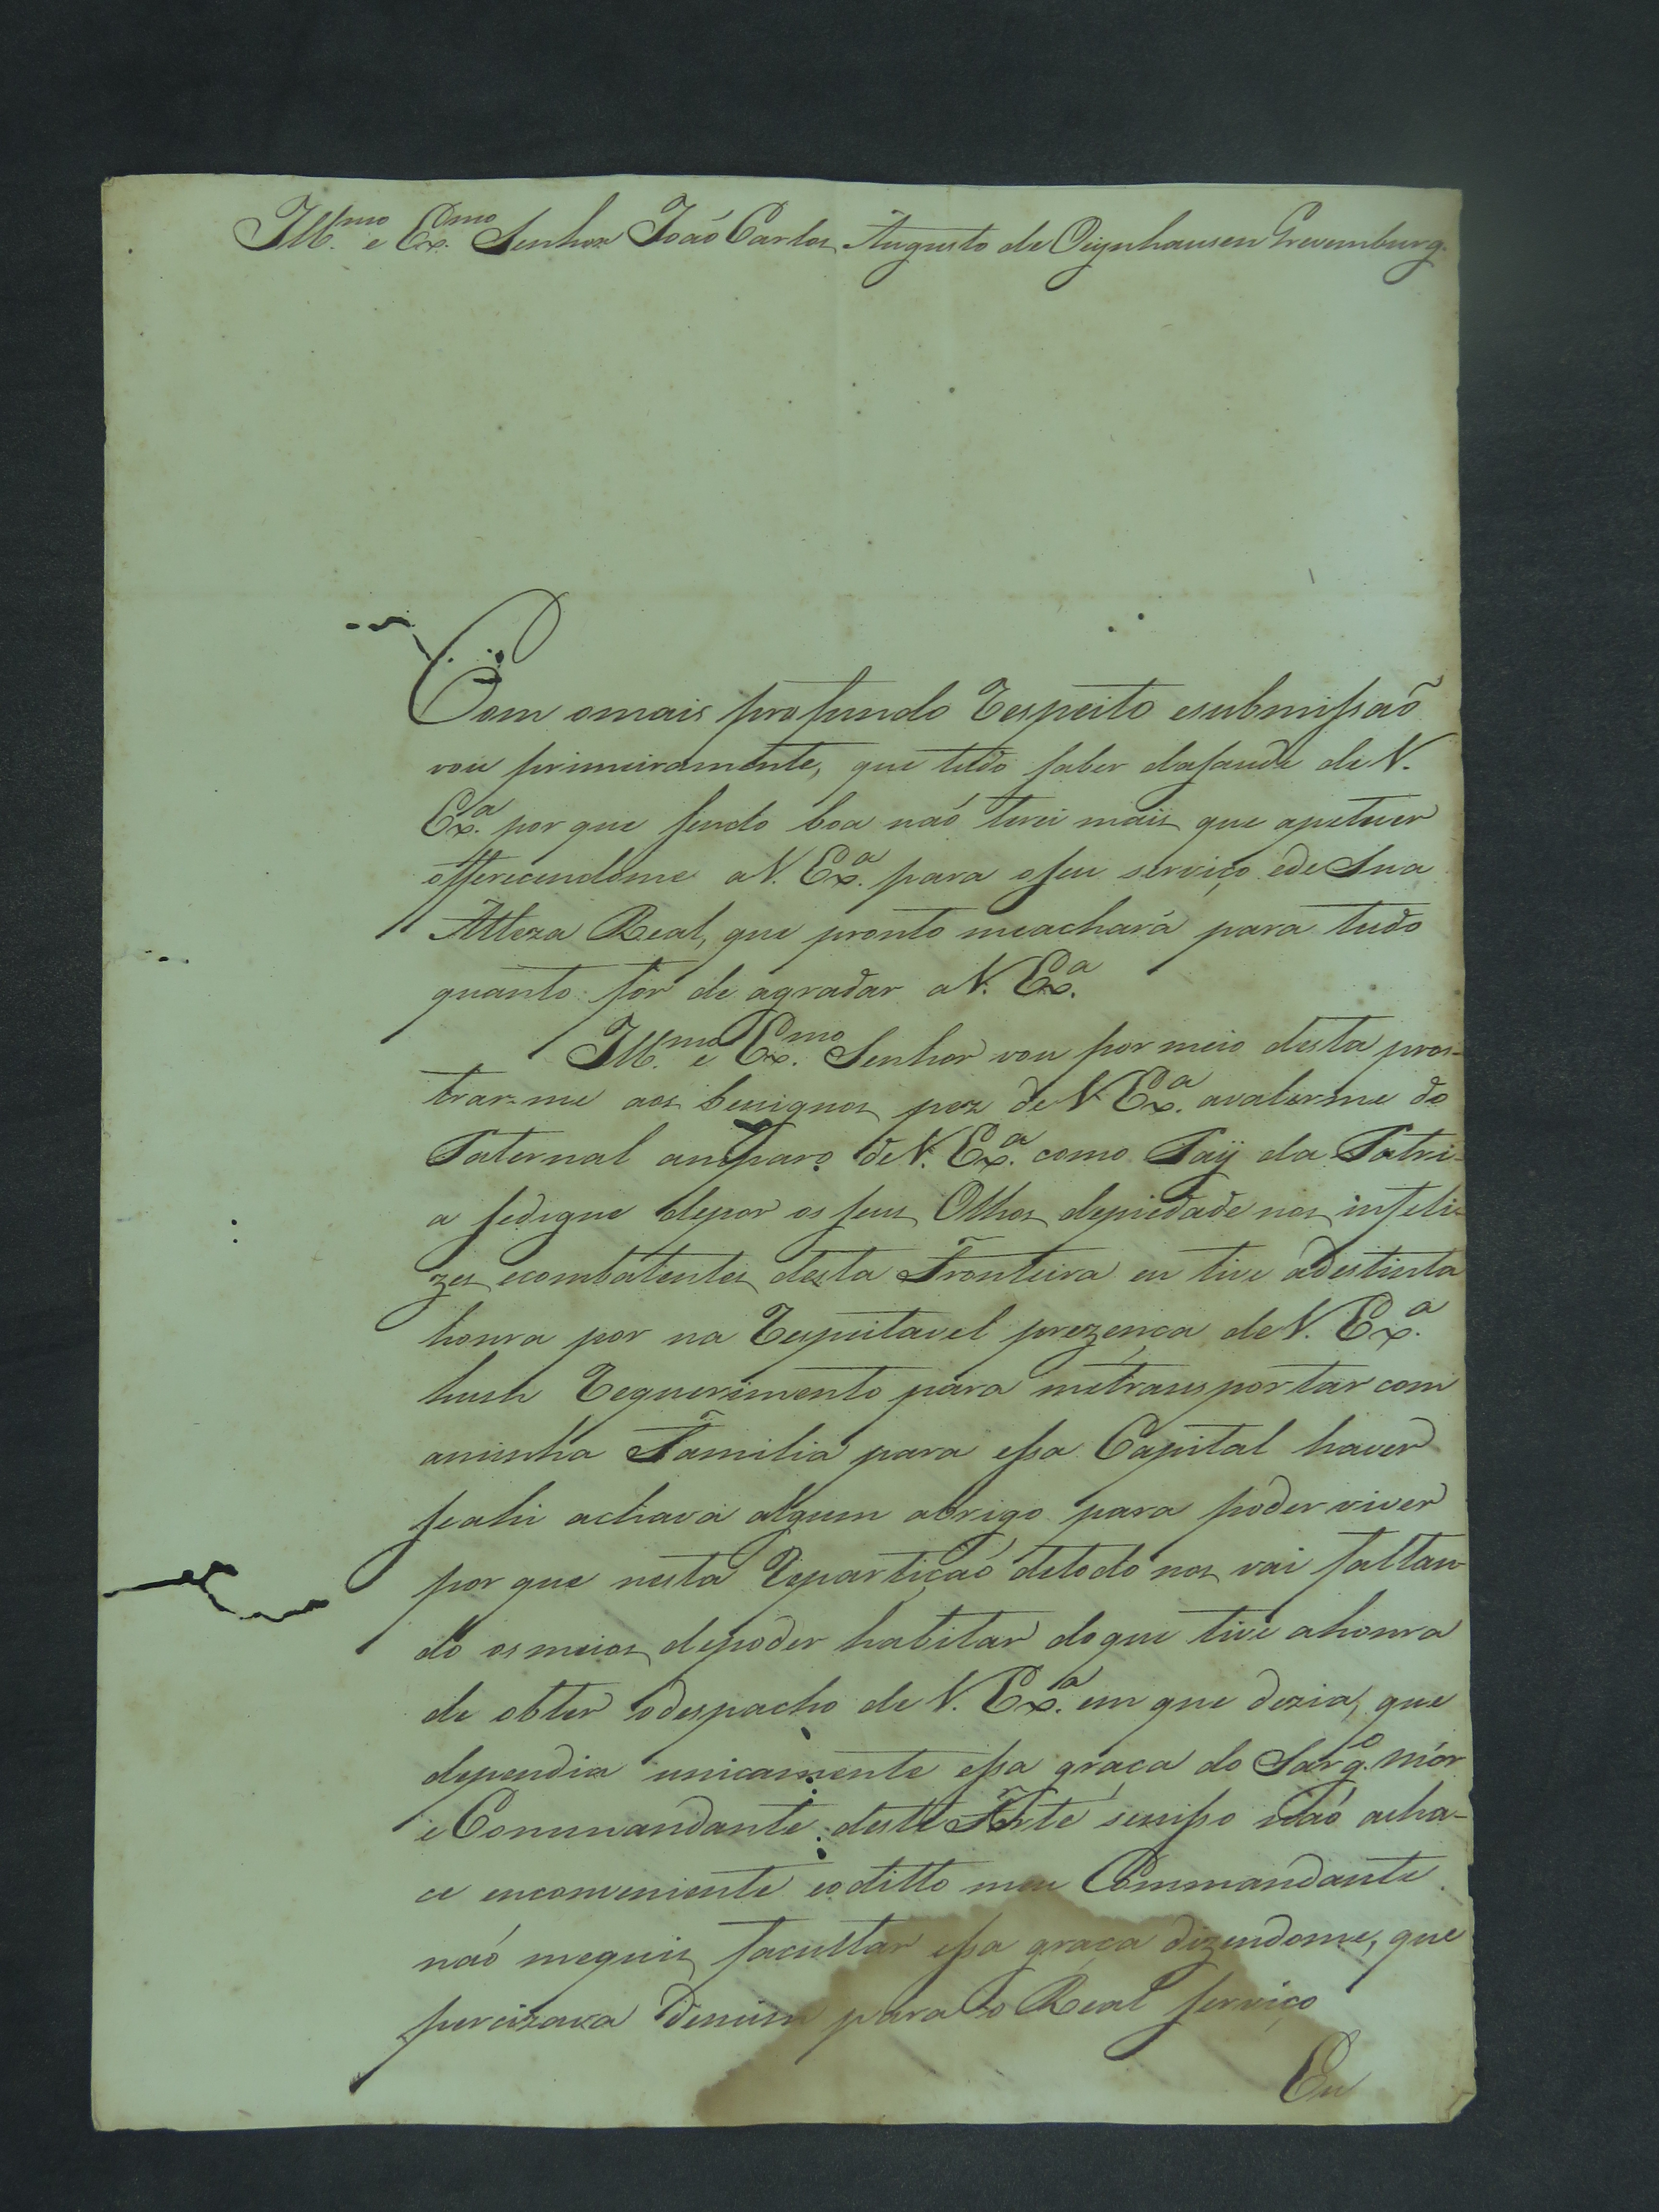 Ill.mo e Ex.mo Senhor João Carlos Augusto de Oigenhausen Grevemburg.
Com omais profundo Respeito esubmissaõ
vou primeiramente, que tudo saber dasaude de V.
Ex.a por que sendo boa naó terei mais que apetecer
offerecendome aV. Ex.a para oseu serviço ede Sua
Alteza Real, que pronto meachará para tudo
quanto for de agradar aV. Ex.a
Ill.mo e Ex.mo Senhor vou por meio desta pros-
trar-me aos benignos pez de V Ex.a avalerme do
Paternal amparo de V. Ex.a como Paÿ da Patri-
a sedigne depor os seus Olhos depiedade nos infeli-
zes ecombatentes desta Fronteira eu tive adestinta
honra por na Respeitavel prezença de V. Ex.a
hum Requerimento para metransportar com
aminha Familia para essa Capital haver
seahi achava algum abrigo para poder viver
por que nesta Repartiçaó detodo nos vai faltan
do os meios depoder habitar doque tive ahonra
de obter odespacho de V. Ex.a em que dezia, que
dependia unicamente essa graça do Sarg.o mór
e Commandante deste Forte senisso naó acha-
ce enconveniente eoditto meu Commandante
naó mequis facultar essa graça dizendome, que
percizava demim para o Real serviço
Eu